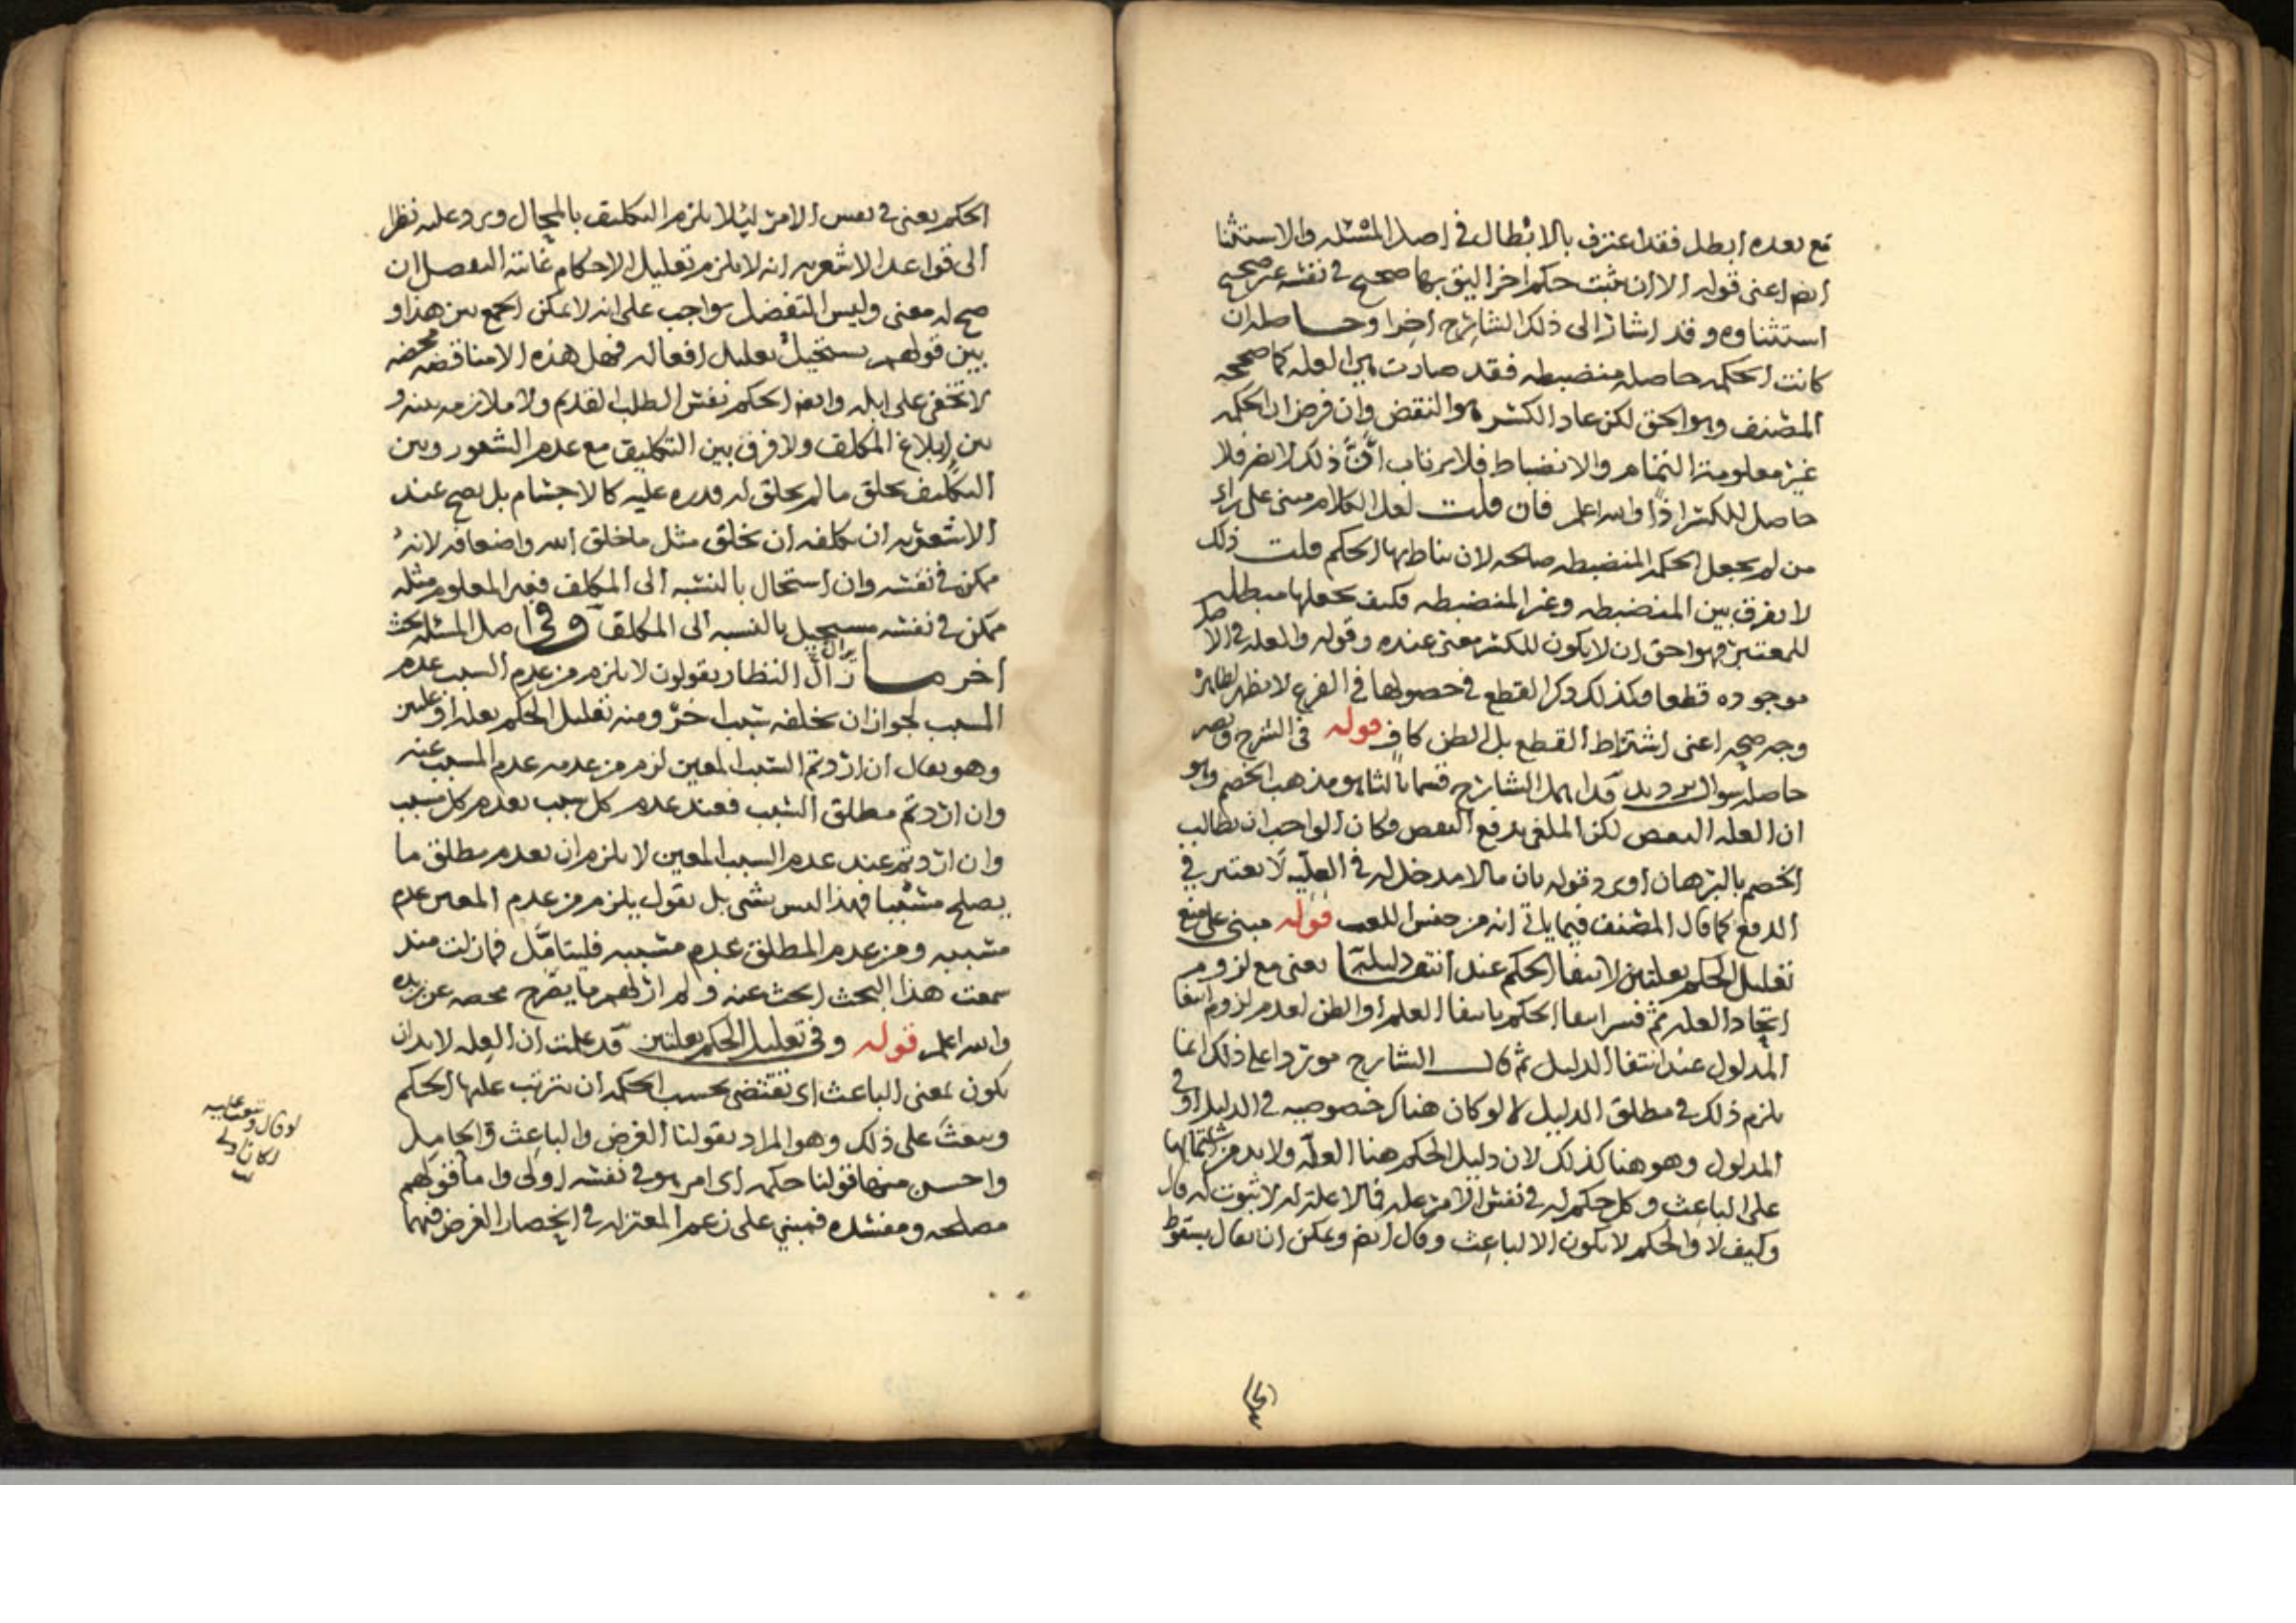 مع بعده ابطل فقد اعترف بالابطال في اصل المسئله والاستثنا
ايضا اعنى قوله الا ان يثبت حكم اخر اليق بها صحيح في نفسه غير صحيح
استثناوه وقد اشار الى ذلك الشارح اخرا وحاصله ان
كانت الحكمه حاصله منضبطه فقد صارت هي العله كما صححه
المصنف وهو الحق لكن عاد الكسر هو النقض وان فرض ان الحكمه
غير معلومة التمام والانضباط فلا يرتاب ان ذلك لا يضر فلا
حاصل للكسر اذًا والله اعلم فان قلت لعل الكلام مبنى على راى
من لم يجعل الحكمه المنضبطه صالحه لان يناط بها الحكم قلت ذلك
لا يفرق بين المنضبطه وغير المنضبطه فكيف يجعلها مبطله
للمعتبر فهو احق ان لا يكون للكسر معنى عنده وقوله والعله في الاصل
موجوده قطعا وكذلك ذكر القطع في حصولها في الفرع لا يظهر لظاهره
وجه صحيح اعنى اشتراط القطع بل الظن كاف قوله في الشرح
حاصله سوال ترديد قد اهمل الشارح قسما ثالثا هو مذهب الخصم وهو
ان العله البعض لكن الملغى يدفع النقض وكان الواجب ان يطالب
الخصم بالبرهان او يرد قوله بان مالا مدخل له في العليه لا يعتبر في
الدفع كما قال المصنف فيما ياتي انه من جنس اللعب قوله مبنى على منع
تعليل الحكم بعلتين لانتفا الحكم عند انتفا دليله يعنى مع لزوم
اتحاد العله ثم فسر انتفا الحكم بانتفا العلم او الظن لعدم لزوم انتفا
المدلول عند انتفا الدليل ثم قال الشارح موردا على ذلك انما
يلزم ذلك في مطلق الدليل لا لو كان هناك خصوصيه في الدليل او في
المدلول وهو هنا كذلك لان دليل الحكم هنا العله ولا بد من اشتمالها
على الباعث وكل حكم له في نفس الامر عله فمالا علة له لا ثبوت له قال
وكيف لا والحكم لا يكون الا لباعث وقال ايضا ويمكن ان يقال بسقوط
الحكم يعنى في نفس الامر ليلا يلزم التكليف بالمحال ويرد عليه نظرا
الى قواعد الاشعريه انه لا يلزم تعليل الاحكام غايته التفضل ان
صح له معنى وليس التفضل بواجب على انه لا يمكن الجمع بين هذا و
بين قولهم يستحيل تعليل افعاله فهل هذه الا مناقضه محضه
لا تخفى على ابله وايضا الحكم نفس الطلب القديم ولا ملازمه بينه و
بين ابلاغ المكلف ولا فرق بين التكليف مع عدم الشعور وبين
التكليف بخلق مالم يخلق له قدره عليه كالاجسام بل يصح عند
الاشعريه ان يكلفه ان يخلق مثل ماخلق الله واضعافه لانه
ممكن في نفسه وان استحال بالنسبه الى المكلف فغير المعلوم مثله
ممكن في نفسه مستحيل بالنسبه الى المكلف وفي اصل المسئله بحث
اخر ما زال النظار يقولون لا يلزم من عدم السبب عدم
المسبب لجواز ان يخلفه سبب اخر ومنه تعليل الحكم بعله او علتين
وهو يقال ان اردتم السبب المعين لزم من عدمه عدم المسبب عنه
وان اردتم مطلق السبب فعند عدم كل سبب يعدم كل مسبب
وان اردتم عند عدم السبب المعين لا يلزم ان يعدم مطلق ما
يصلح مسببا فهذا ليس بشى بل نقول يلزم من عدم المعين عدم
مسببه ومن عدم المطلق عدم مسببه فليتامل فمازلت منذ
سمعت هذا البحث ابحث عنه ولم ار لهم ما يصرح
والله اعلم قوله وفي تعليل الحكم بعلتين قد علمت ان العله لا بد ان
يكون لمعنى الباعث اى تقتضى بحسب الحكمه ان يترتب عليها الحكم
ويبعث على ذلك وهو المراد بقولنا الغرض والباعث والحامل
واحسن منها قولنا حكمه اى امر هو في نفسه اولى واما قولهم
مصلحه ومفسده فمبني على زعم المعتزله في انحصار الغرض فيهما
لو قال وتبعث عليه
لكان اولى